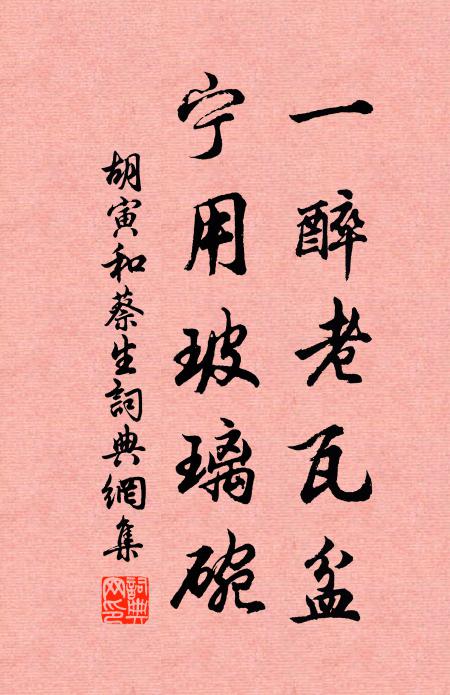 一醉老瓦盆
宁用玻璃碗
胡寅和蔡生詞典網集
詞典網印